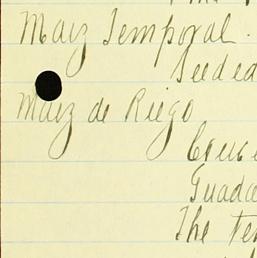 Maiz Temporal.
Seeded
Maiz de Riego
Guada
The Te